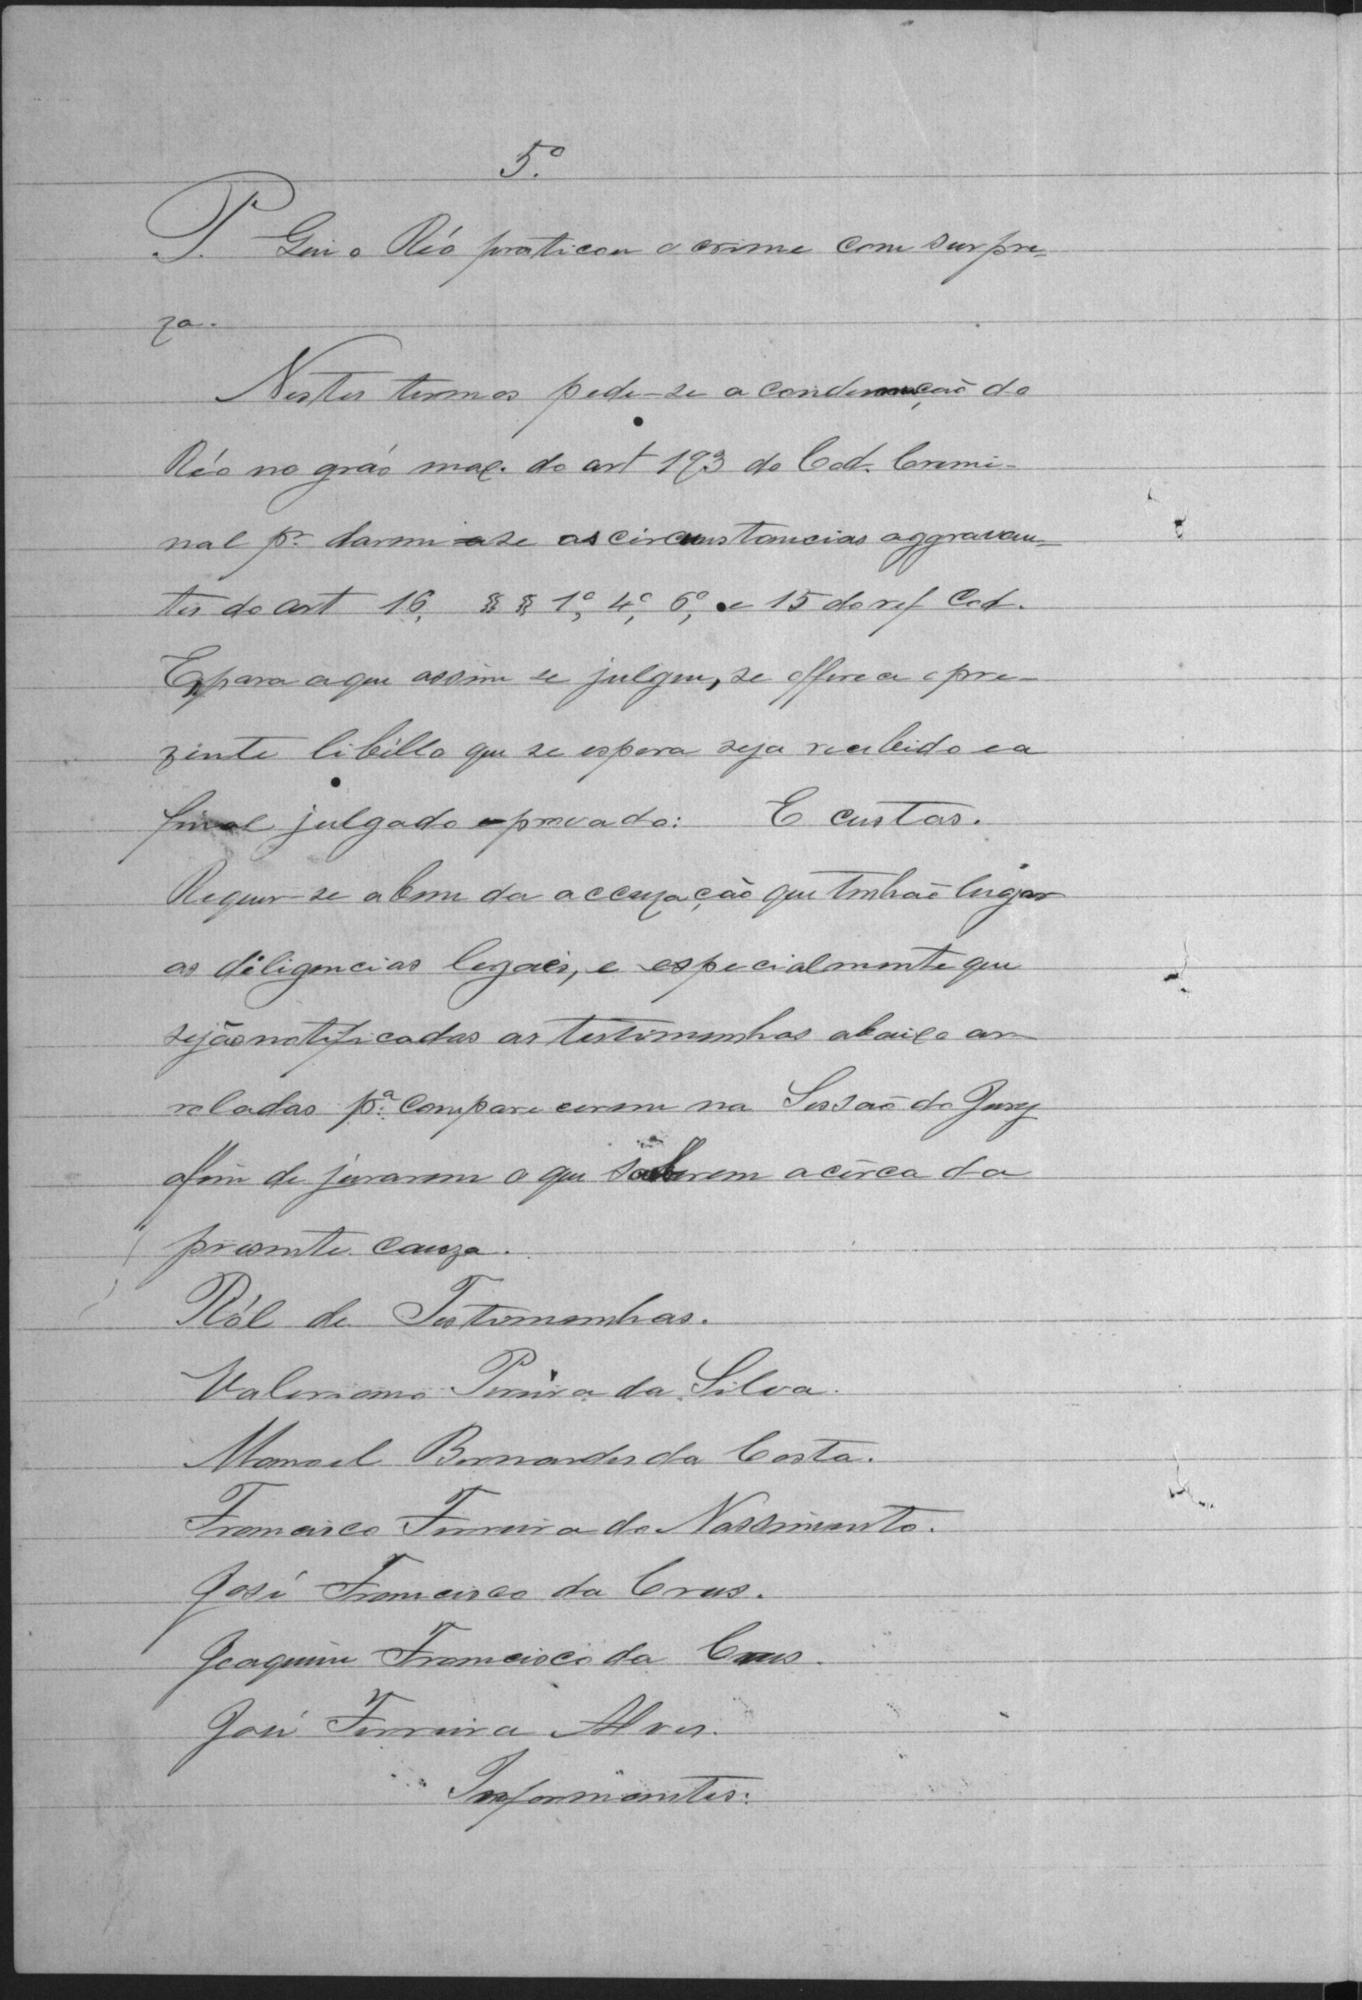 5º
P. Que o Réo praticou o crime com surpre-
za.
Nestes termos pede-se a condemnação do
Réo no gráo max. do art 193 do Cod. Crimi-
nal pr. darem-se as circunstancias aggravan-
tes do art 16, §§ 1º, 4º, 6º, e 15 do ref Cod.
E, para que assim se julgue, se offerece o pre-
zente libéllo que se espera seja recebido e a
final julgado e provado: E custas.
Requer-se a bem da accuzação que tenhão lugar
as diligencias legaes, e especialmente que
sejão notificadas as testimunhas abaixo ar-
roladas pª comparecerem na Sessão do Jury
afim de jurarem o que souberem acêrca da
presente cauza.
Ról de Testimunhas.
Valeriano Pereira da Silva.
Manoel Bernardes da Costa.
Francisco Ferreira do Nassimento.
José Francisco da Crus.
Joaquim Francisco da Crus.
José Ferreira Alves.
Informantes: